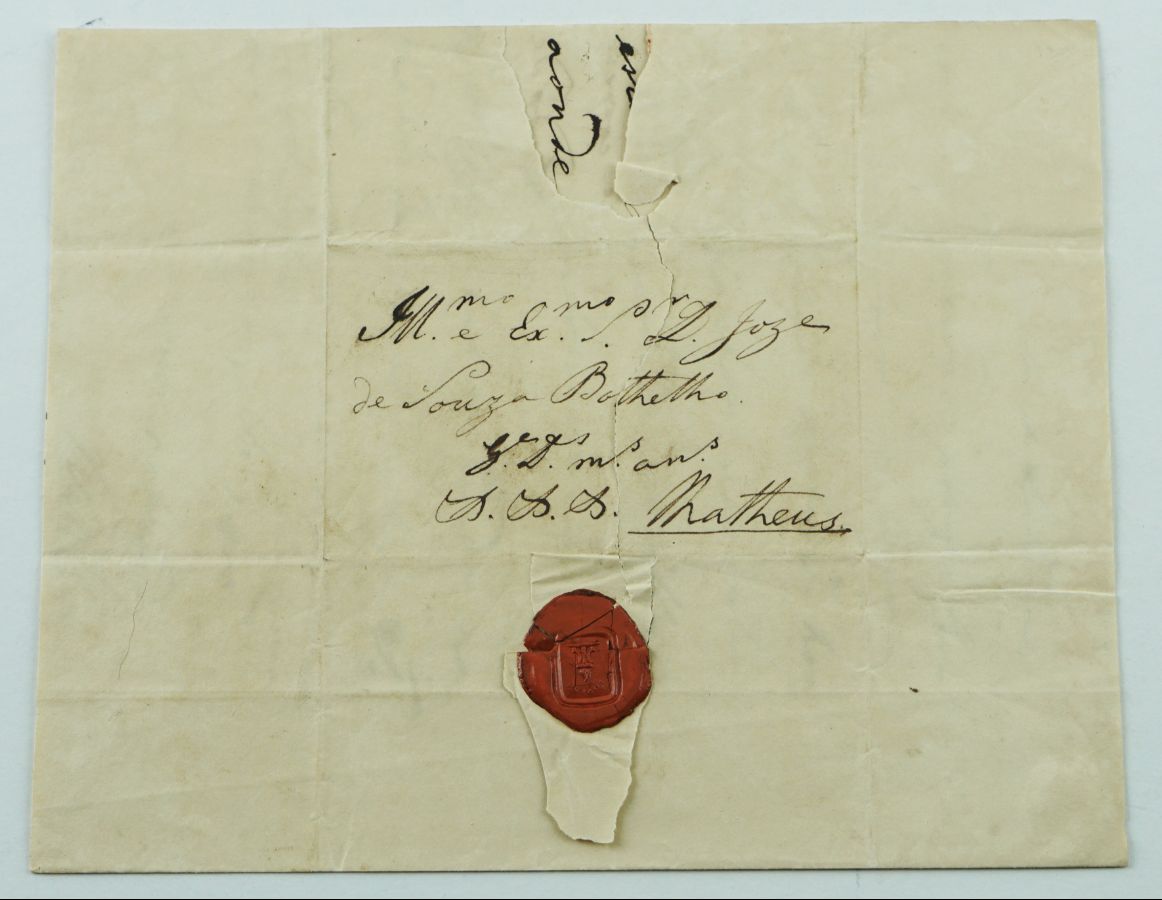 aonde
Ill.mo e Ex.mo Sr. D. Joze
de Souza Bothelho.
G.e D.s m.s an.s
S. S. S. Matheus.